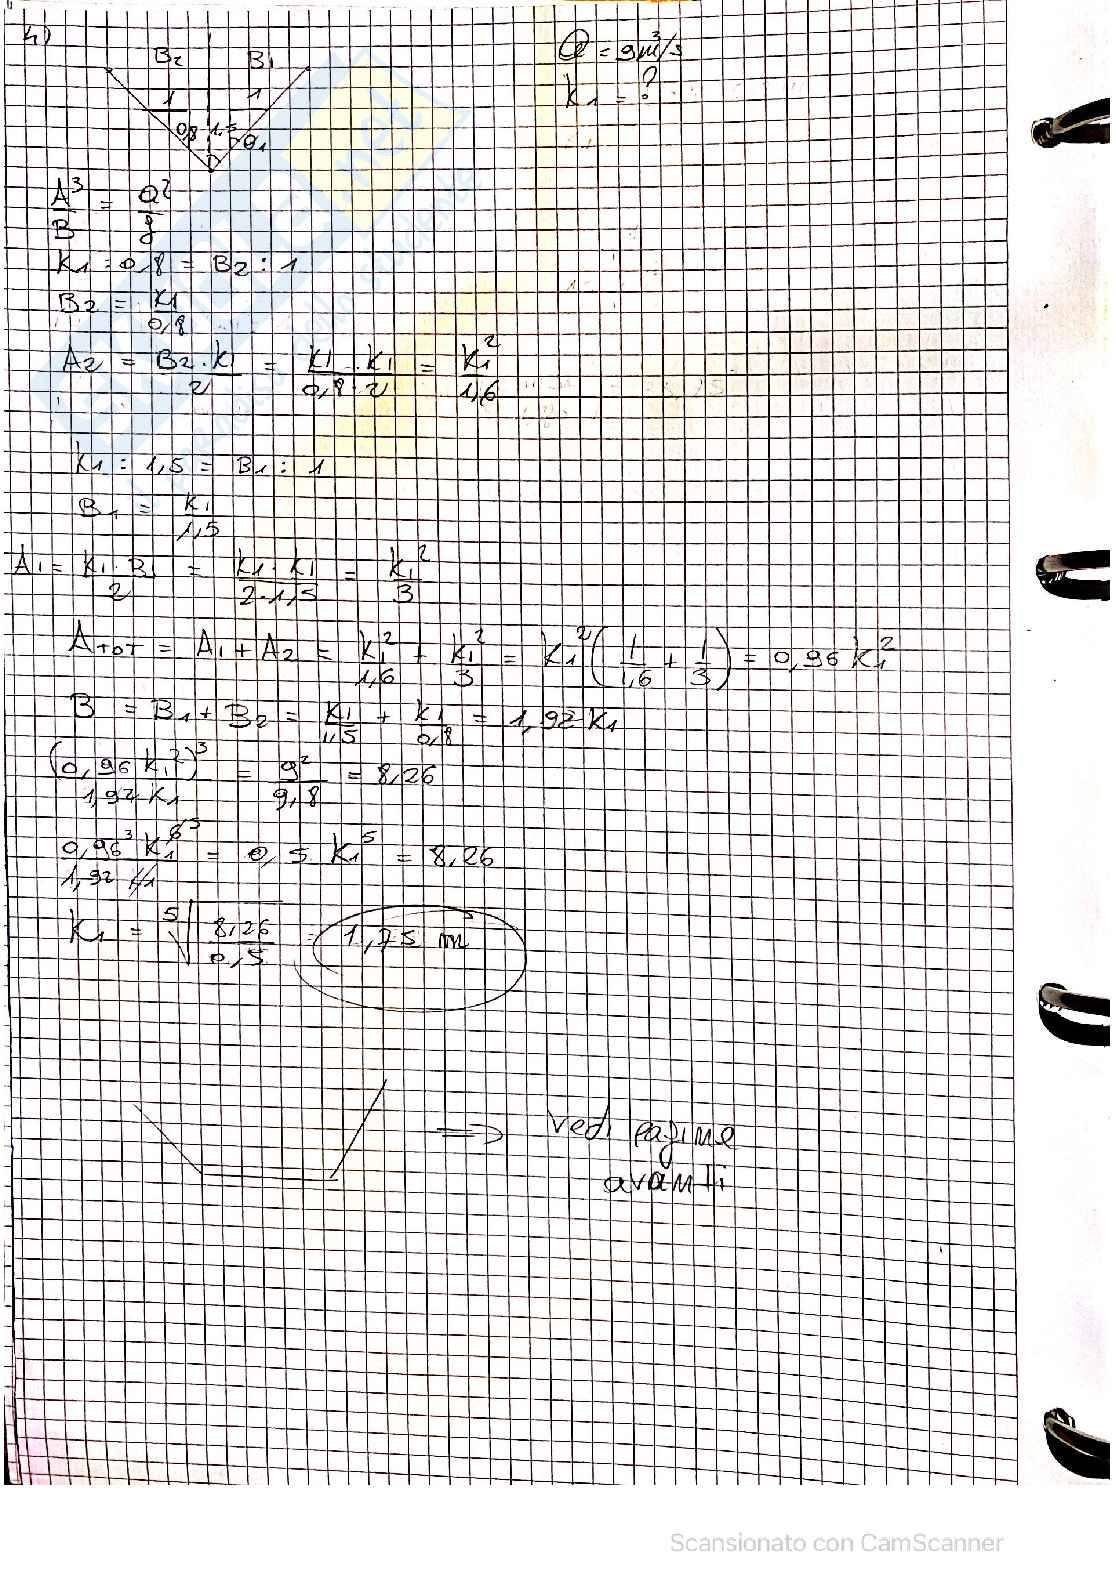 4)
B2 B1
1 1
0,8 1,5 θ1
Q = 9 m³/s
K1 = ?
A³/B = Q²/g
K1 : 0,8 = B2 : 1
B2 = K1/0,8
A2 = B2·K1/2 = K1·K1/0,8·2 = K1²/1,6
K1 : 1,5 = B1 : 1
B1 = K1/1,5
A1 = K1·B1/2 = K1·K1/2·1,5 = K1²/3
ATOT = A1 + A2 = K1²/1,6 + K1²/3 = K1² (1/1,6 + 1/3) = 0,96 K1²
B = B1 + B2 = K1/1,5 + K1/0,8 = 1,92 K1
(0,96 K1²)³/1,92 K1 = 9²/9,8 = 8,26
0,96³ K1⁶ ⁵/1,92 K1 = 0,5 K1⁵ = 8,26
K1 = ⁵√8,26/0,5 = 1,75 m
=> vedi pagine
avanti
Scansionato con CamScanner